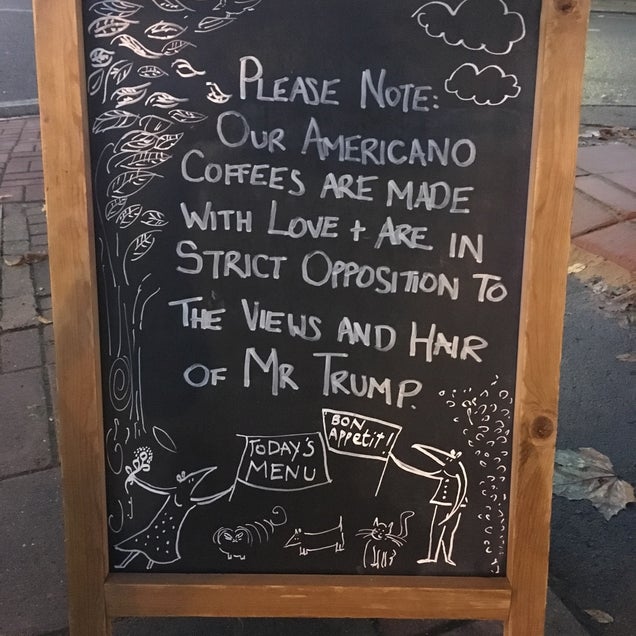 PLEASE NOTE:
OUR AMERICANO
COFFEES ARE MADE
WITH LOVE + ARE IN
STRICT OPPOSITION TO
THE VIEWS AND HAIR
OF MR TRUMP.
BON
APPetit!
TODAY'S
MENU